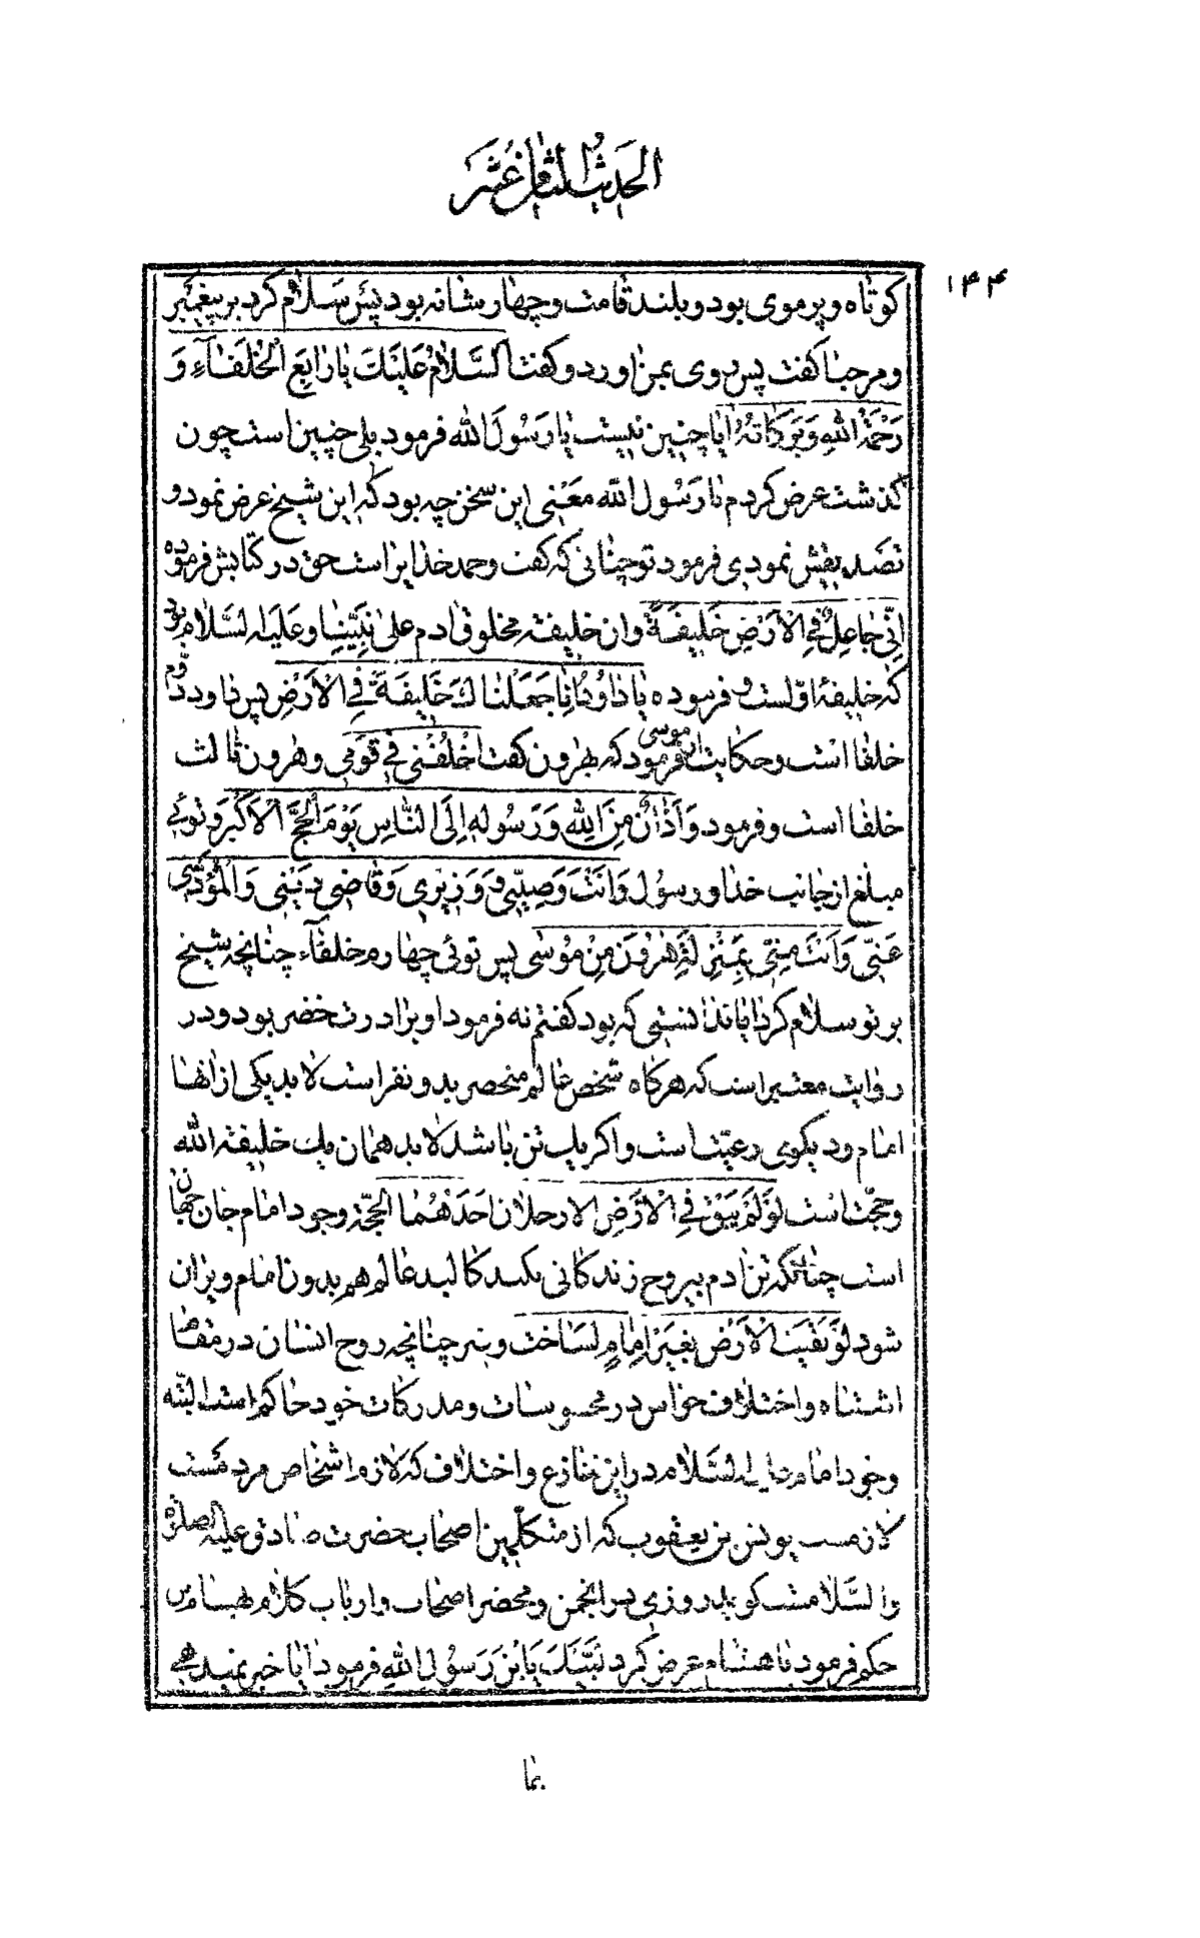 الحدیث الثامن عشر
۱۴۴
کوتاه و پر موی بود و بلند قامت و چهار شانه بود پس سلام کرد بر پیغمبر
و مرحبا گفت پس روی بمن اورد و گفت اَلسَّلامُ عَلَیْكَ یا رابِعَ الْخُلَفآءِ وَ
رَحْمَةُ اللهِ وَبَرَکاتُهُ ایا چنین نیست یا رَسُولَ الله فرمود بلی چنین است چون
گذشت عرض کردم یا رَسُول الله مَعْنی این سخن چه بود که این شیخ عرض نمود و
تصدیقش نمودی فرمود تو چنانی که گفت و حمد خدایرا است حق در کتابش فرموده
اِنّی جاعِلٌ فِی الْاَرْضِ خَلیفَةً وان خلیفه مخلوق ادم علی نَبِیِّنا وعَلَیه السَّلام بود
که خلیفهٔ اوّلست و فرموده یا داوُدُ اِنّا جَعَلْناكَ خَلیفَةً فِی الْاَرْضِ پس داود دوّم
خلفا است و حکایت از موسی فرمود که بهرون گفت اخْلُفْنی فی قَوْمی و هرون ثالث
خلفا است و فرمود وَاَذانٌ مِنَ اللهِ وَرَسُولِه اِلَی النّاسِ یَوْمَ الْحَجِّ الْاَکْبَرِ و توئی
مبلغ از جانب خدا و رسول وَاَنْتَ وَصِیّی وَ وَزیری وَقاضی دَیْنی وَالْمُؤَدّی
عَنّی وَاَنْتَ مِنّی بِمَنْزِلَةِ هٰرُونَ مِنْ مُوسٰی پس توئی چهارم خلفآء چنانچه شیخ
بر تو سلام کرد ایا ندانستی که بود گفتم نه فرمود او برادرت خضر بود و در
روایت معتبر است که هرگاه شخص عالم منحصر بدو نفر است لابد یکی از انها
امام و دیگری رعیّت است و اگر یك تن باشد لابد همان یك خلیفة الله
و حجّت است لَوْلَمْ یَبْقَ فِی الْاَرْضِ الا رجلان اَحَدَهُما الحجّة وجود امام جان جهان
است چنانکه تن ادم بیروح زندگانی نکند کالبد عالم هم بدون امام ویران
شود لَوْبَقِیَتِ الْاَرْضُ بِغَیْرِ اِمامٍ لَساخَت و نیز چنانچه روح انسان در مقام
اشتباه و اختلاف حواس در محسوسات و مدرکات خود حاکم است البته
وجود امام علیه السَّلام در این تنازع و اختلاف که لازم اشخاص مردمست
لازمست یونس بن یعقوب که از متکلّمین اصحاب حضرت صادق علیه الصلوة
والسَّلامست گوید روزی در انجمن و محضر اصحاب و ارباب کلام بهشام بن
حکم فرمود یا هشام عرض کرد لَبَّیْكَ یَابْنَ رَسُول اللهِ فرمود ایا خبر نمیدهی
بما